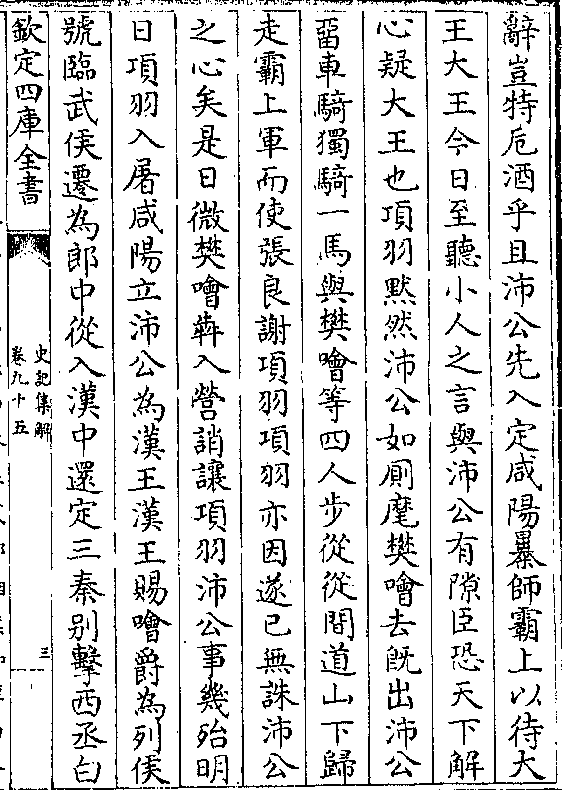 辭豈特巵酒乎且沛公先入定咸陽暴師霸上以待大
王大王今日至聽小人之言與沛公有隙臣恐天下解
心疑大王也項羽黙然沛公如厠麾樊噲去旣出沛公
留車騎獨騎一馬與樊噲等四人步從從間道山下歸
走霸上軍而使張良謝項羽項羽亦因遂已無誅沛公
之心矣是日微樊噲犇入營誚讓項羽沛公事幾殆明
日項羽入屠咸陽立沛公為漢王漢王賜噲爵為列侯
號臨武侯遷為郎中從入漢中還定三秦别擊西丞白
欽定四庫全書
史記集解
卷九十五
三